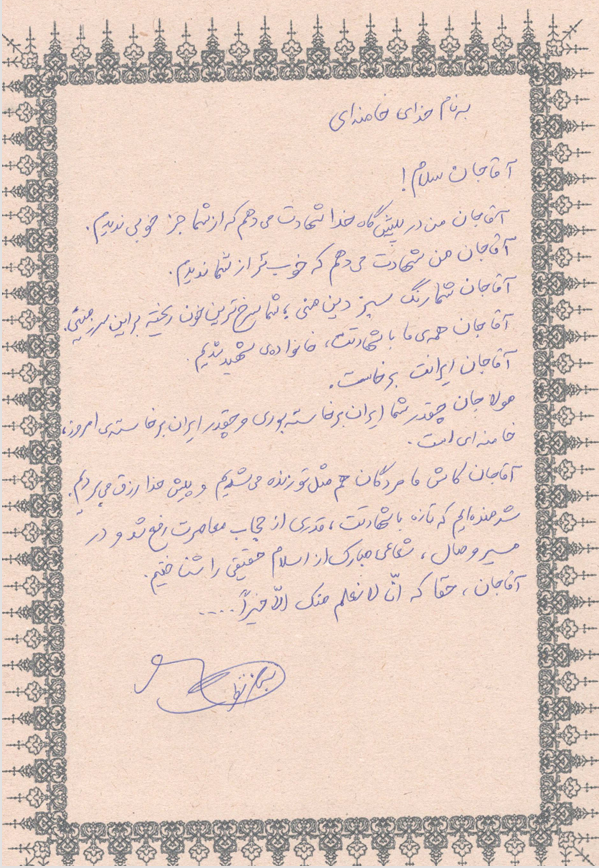 به نام خدای خامنه‌ای
آقاجان سلام!
آقاجان من در پیش‌گاه خدا شهادت می‌دهم که از شما جز خوبی ندیدم.
آقاجان من شهادت می‌دهم که خوب‌تر از شما ندیدم.
آقاجان شما رنگ سبز دین منی؛ شما سرخ‌ترین خون ریخته بر این سرزمینی.
آقاجان همه‌ی ما با شهادتت، خانواده‌ی شهید شدیم.
آقاجان ایرانت برخاست.
مولا جان چقدر شما ایران برخاسته بودی و چقدر ایران برخاسته‌ی امروز،
خامنه‌ای است.
آقاجان کاش ما مردگان هم مثل تو زنده می‌شدیم و پیش خدا رزق می‌بردیم.
شرمنده‌ایم که تازه با شهادتت، قدری از حجاب معاصرت رفع شد و در
مسیر وصال، شعاعی مبارک از اسلام حقیقی را شناختیم.
آقاجان، حقا که انّا لا نعلم منک الّا خیراً....